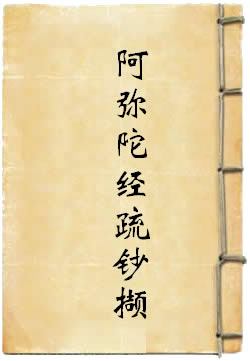 阿弥陀经疏钞撷